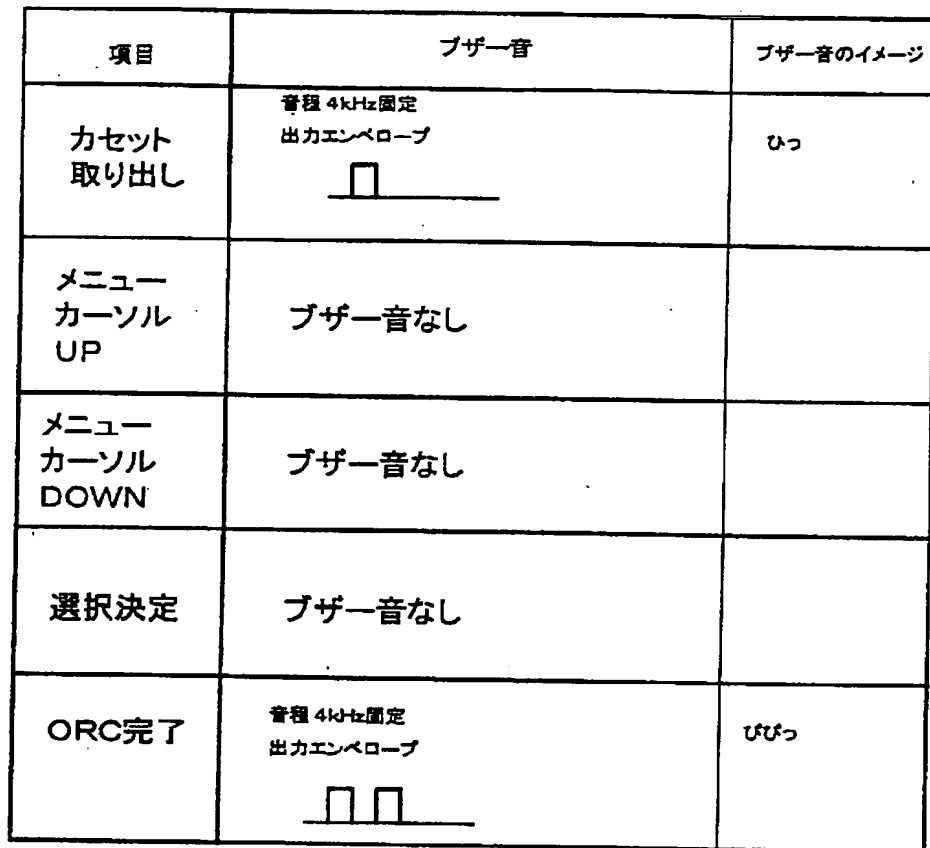 項目
ブザー音
ブザー音のイメージ
カセット
取り出し
音程 4kHz固定
出力エンベロープ
ひっ
メニュー
カーソル
UP
ブザー音なし
メニュー
カーソル
DOWN
ブザー音なし
選択決定
ブザー音なし
ORC完了
音程 4kHz固定
出力エンベロープ
ぴぴっ